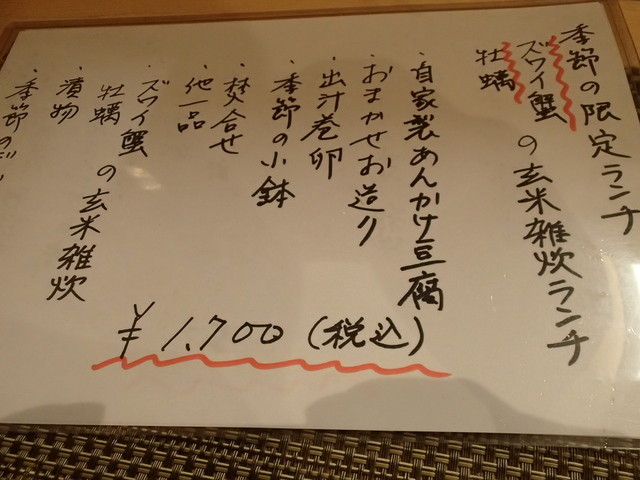 季節の限定ランチ
ズワイ蟹
牡蠣
の玄米雑炊ランチ
・自家製あんかけ豆腐
・おまかせお造り
・出汁巻卵
・季節の小鉢
・焚合せ
・他一品
・ズワイ蟹
牡蠣
の玄米雑炊
・漬物
・季節の
¥1,700(税込)